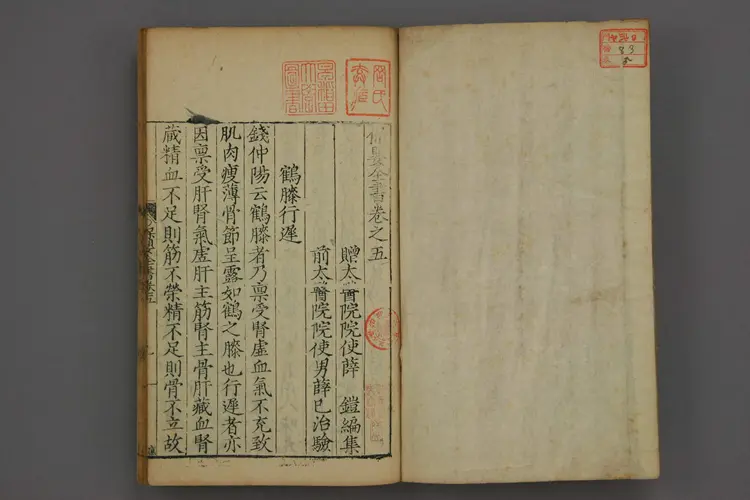 保嬰全書卷之五
贈太醫院院使薛 鎧編集
前太醫院院使男薛已治驗
鶴膝行遲
錢仲陽云鶴膝者乃禀受腎虛血氣不充致
肌肉瘦薄骨節呈露如鶴之膝也行遲者亦
因禀受肝腎氣虛肝主筋腎主骨肝藏血腎
藏精血不足則筋不榮精不足則骨不立故
83